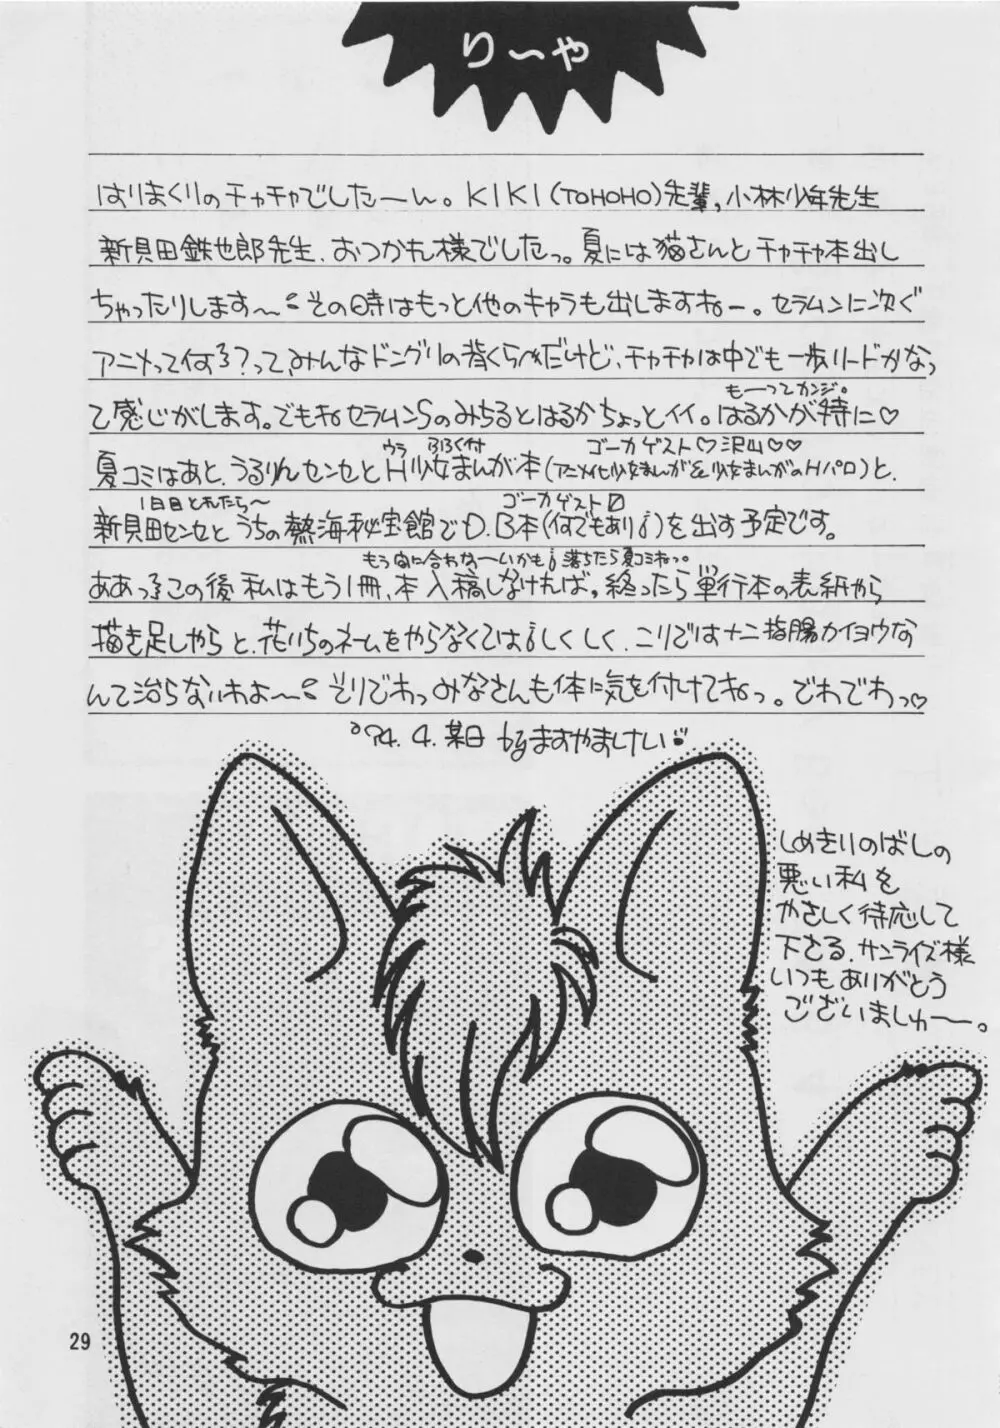 りーや
はりまくりのチャチャでしたーん。KIKI(TOHOHO)先輩,小林少年先生
新貝田鉄也郎先生、おつかれ様でしたっ。夏には猫さんとチャチャ本出し
ちゃったりします〜 その時はもっと他のキャラも出しますねー。セラムンに次ぐ
アニメって何ろ?って、みんなドングリの背くらべだけど、チャチャは中でも一歩リードかなっ
て感じがします。でもねセラムンSのみちるとはるかちょっとイイ。はるかが特に♡
もーってカンジ。
夏コミはあと、うるりんセンセとH少女まんが本(アニメイセ少女まんが&少女まんがのHパロ)と、
ウラ ふろく付 ゴーカゲスト♡沢山♡♡
新貝田センセとうちの熱海秘宝館でD.B本(何でもあり)を出す予定です。
1日目とれたら〜 ゴーカゲスト
ああっこの後私はもう1冊、本入稿しなければ。終ったら単行本の表紙から
もう間に合わな〜いかも 落ちたら夏コミねっ。
描き足しやらと、花いちのネームをやらなくては しくしく、こりでは十二指腸カイヨウな
んて治らないわよ〜 そりでわっみなさんも体に気を付けてねっ。でわでわっ♡
'94.4.某日 byますやましけい
しめきりのばしの
悪い私を
やさしく待応して
下さる、サンライズ様
いつもありがとう
ございましゅ〜。
29